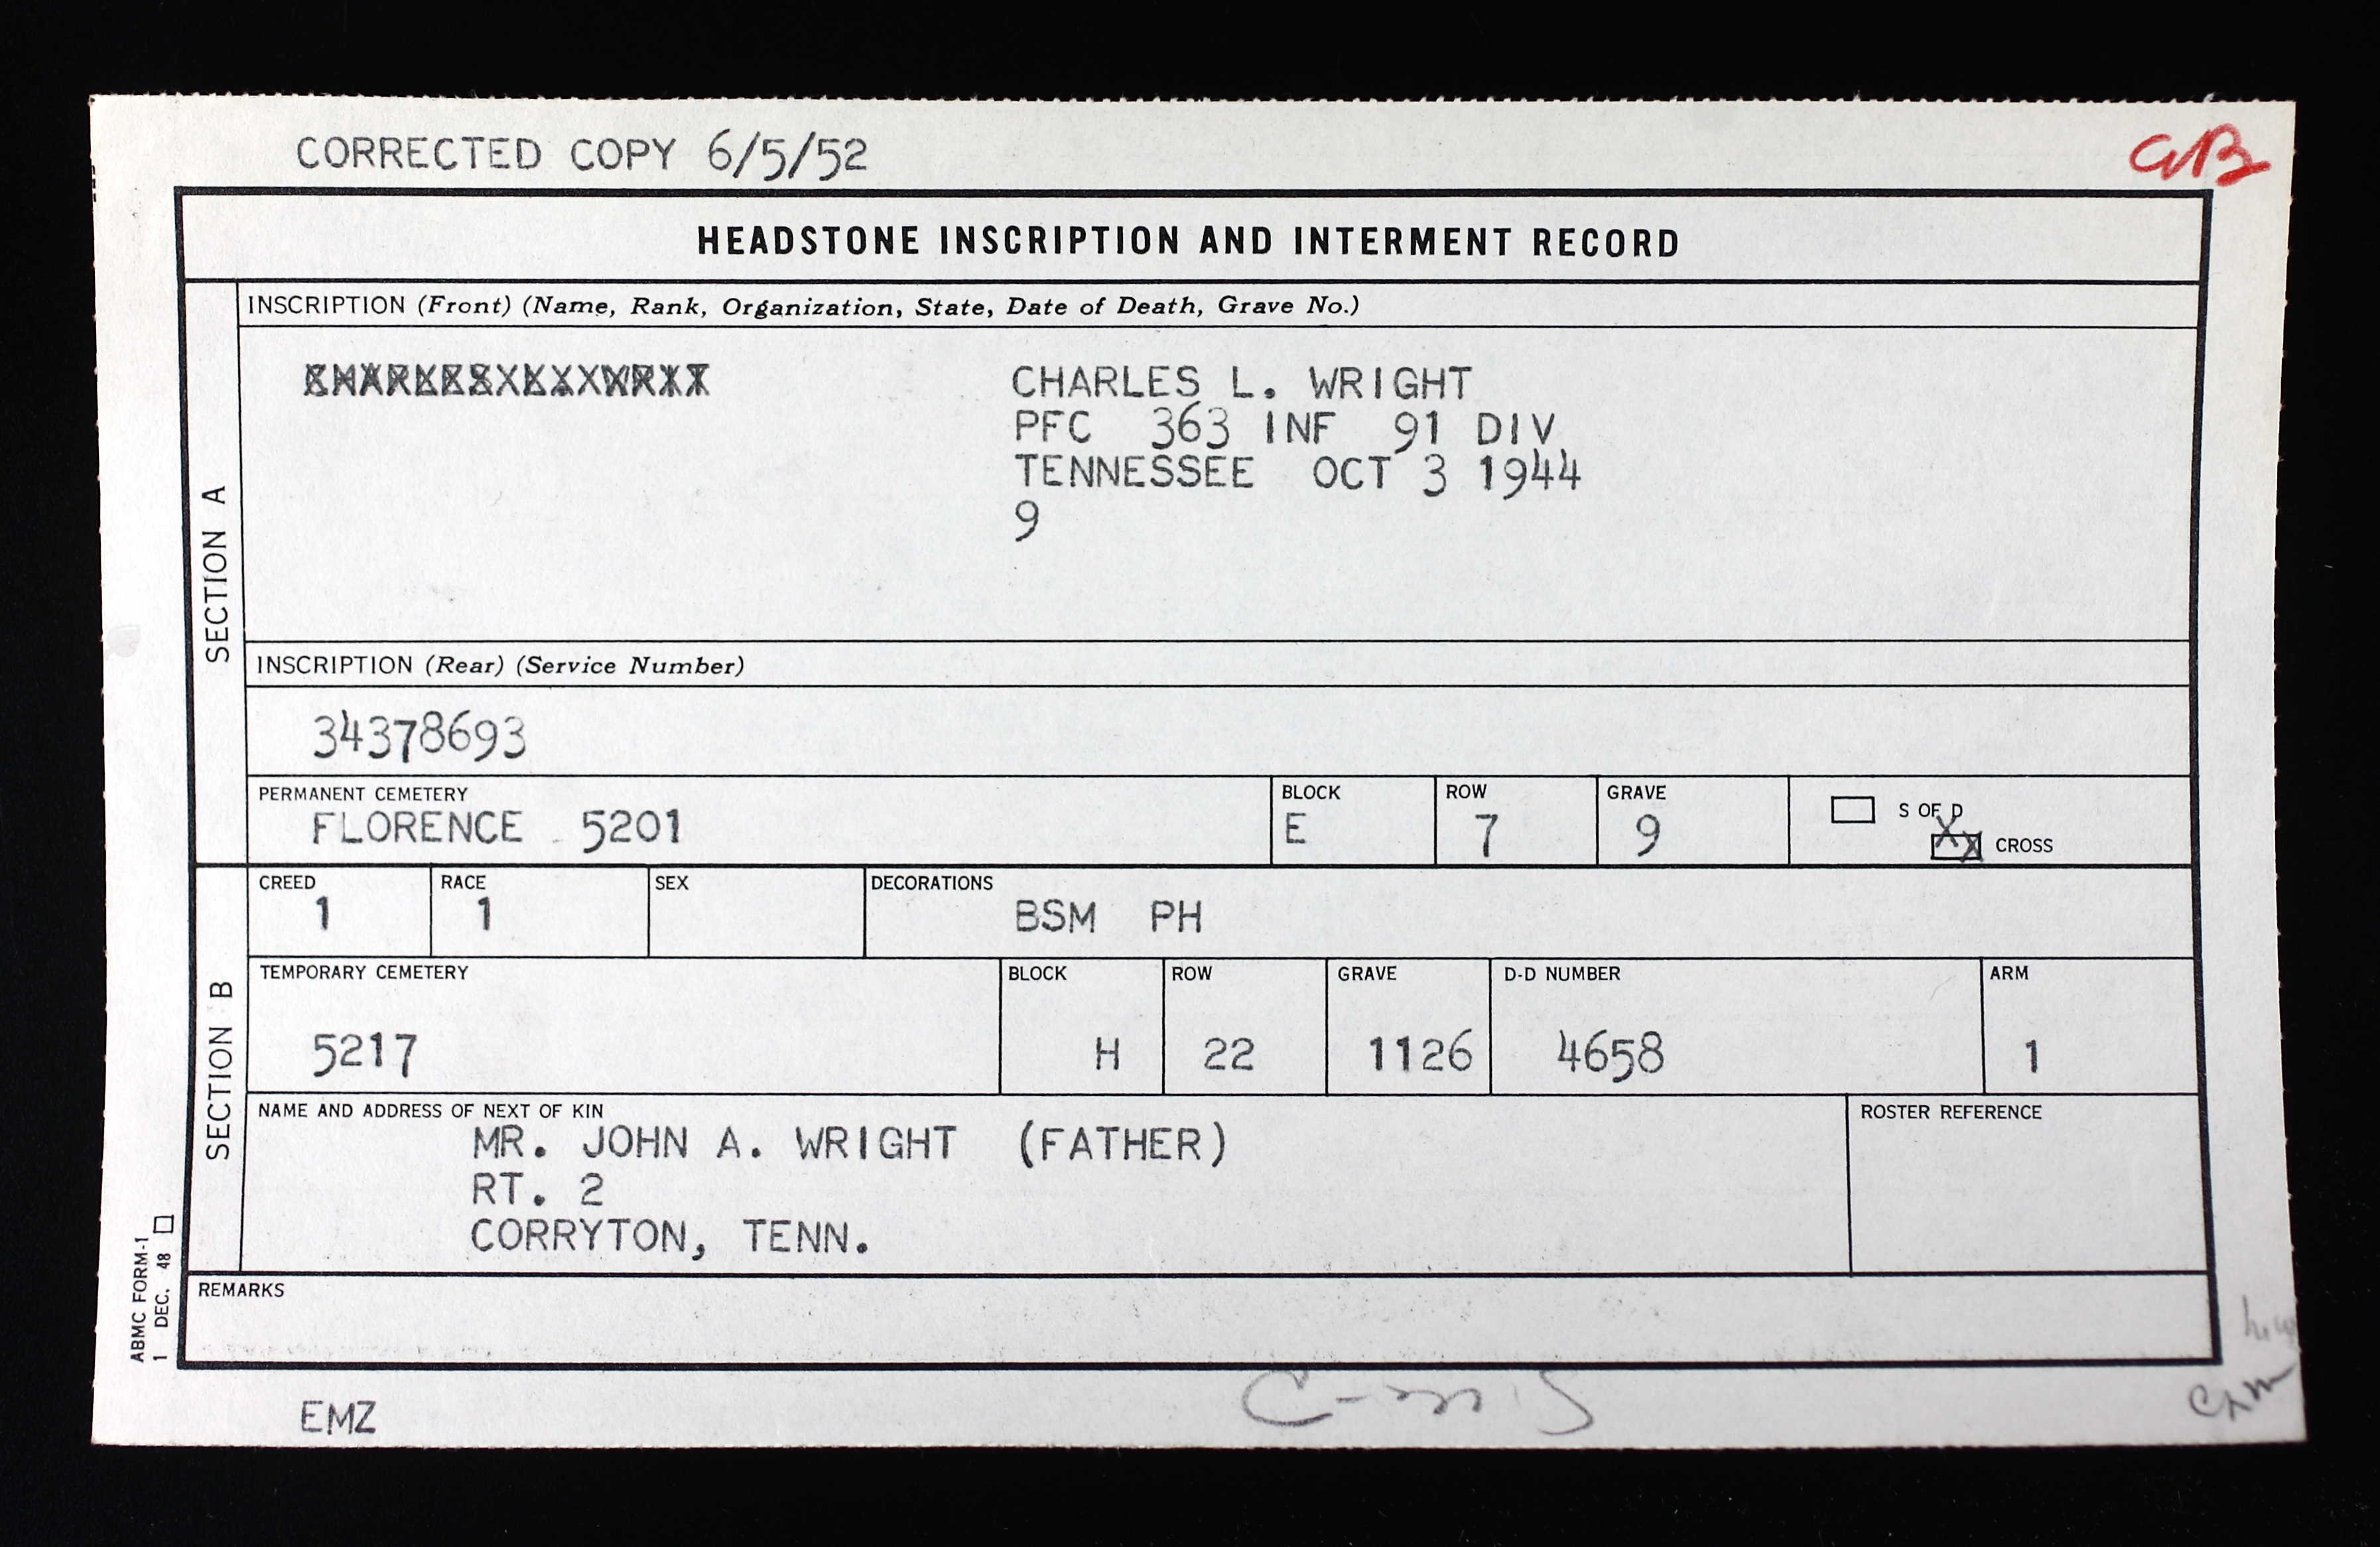 CORRECTED COPY 6/5/52
HEADSTONE INSCRIPTION AND INTERMENT RECORD
SECTION A
INSCRIPTION (Front) (Name, Rank, Organization, State, Date of Death, Grave No.)
CHARLES L. WRIGHT
PFC 363 INF 91 DIV
TENNESSEE OCT 3 1944
9
INSCRIPTION (Rear) (Service Number)
34378693
PERMANENT CEMETERY BLOCK ROW GRAVE
FLORENCE 5201 E 7 9
S OF D
XX CROSS
SECTION B
CREED RACE SEX DECORATIONS
1 1 BSM PH
TEMPORARY CEMETERY BLOCK ROW GRAVE D-D NUMBER ARM
5217 H 22 1126 4658 1
NAME AND ADDRESS OF NEXT OF KIN ROSTER REFERENCE
MR. JOHN A. WRIGHT (FATHER)
RT. 2
CORRYTON, TENN.
REMARKS
ABMC FORM-1
1 DEC. 48
EMZ